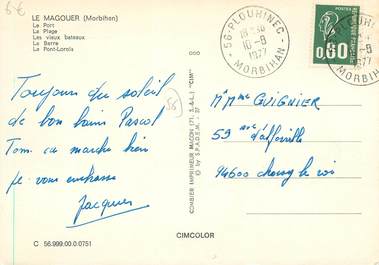 6€
LE MAGOUER (Morbihan)
Le Port
La Plage
Les vieux bateaux
La Barre
Le Pont-Lorois
56-PLOUHINEC
10-8
1977
MORBIHAN
POSTES
0,80
REPUBLIQUE FRANÇAISE
1977
MORBIHAN
Toujours du soleil
de bons bains Pascal
Tom ça marche bien
je vous embrasse
Jacques
56
COMBIER IMPRIMEUR MACON (71, S.-&-L.) "CIM"
© by S.P.A.D.E.M. - 37
M. Mme GUIGNIER
59 ave d'alfortville
94600 choisy le roi
C 56.999.00.0.0751
CIMCOLOR